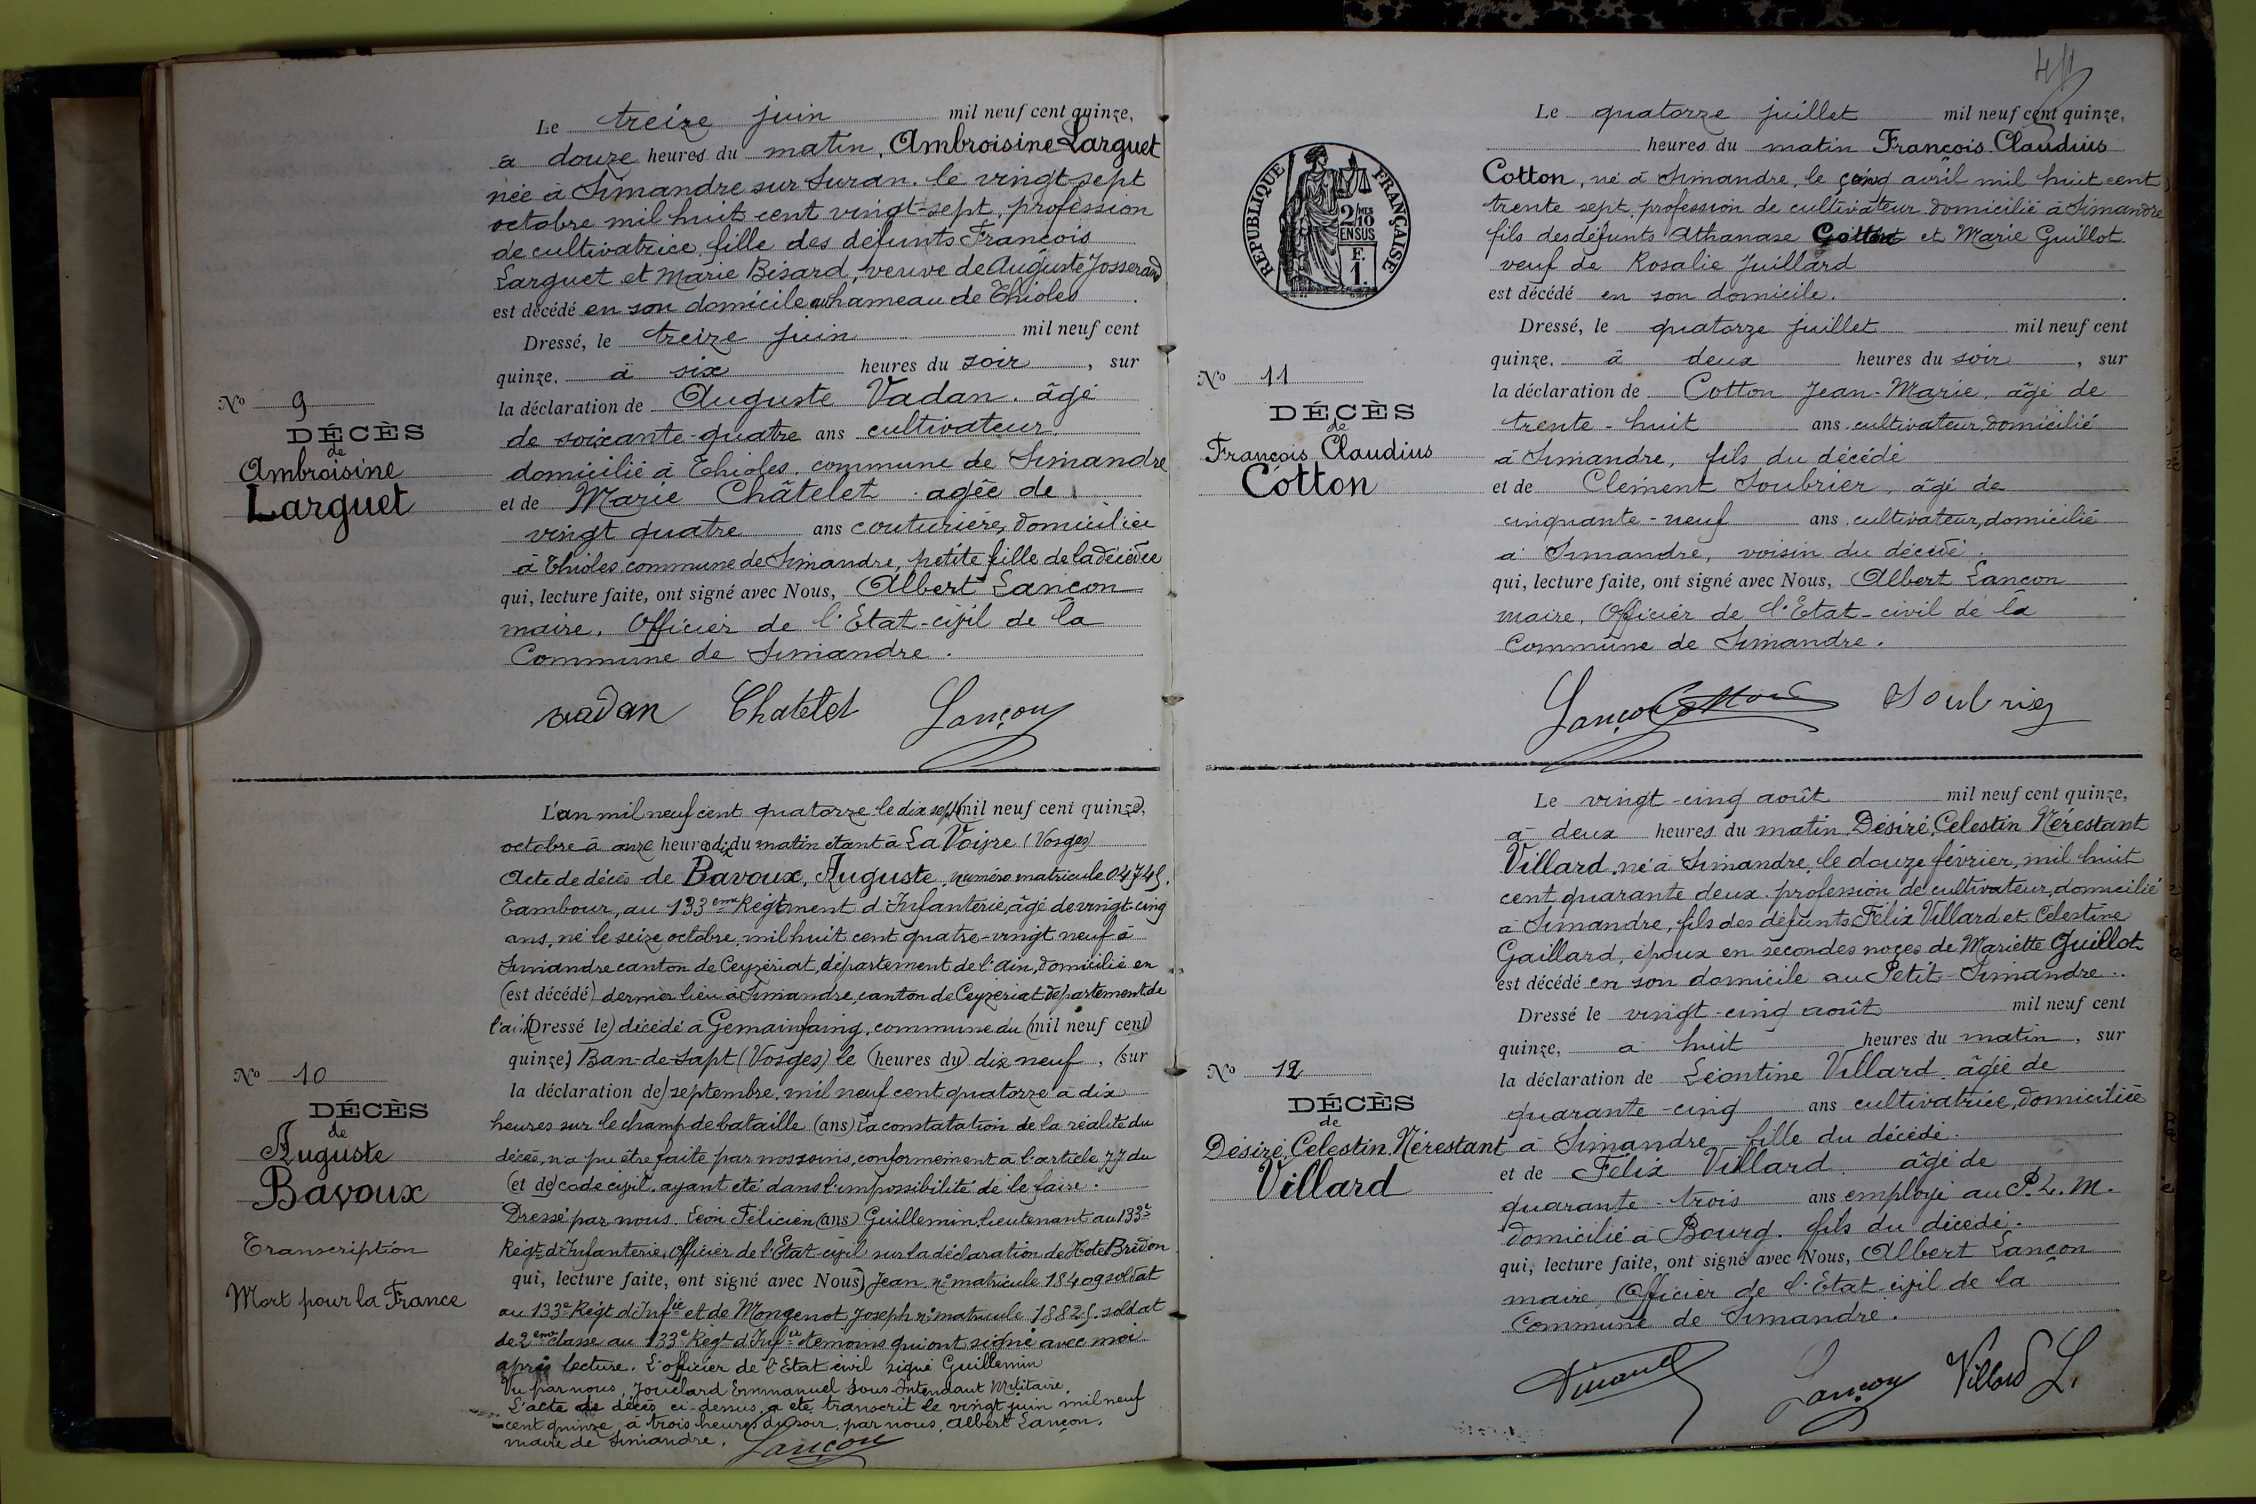 Le treize juin mil neuf cent quinze,
à douze heures du matin, Ambroisine Larguet
née à Simandre sur Suran. le vingt-sept
octobre mil huit cent vingt-sept, profession
de cultivatrice, fille des défunts François
Larguet et Marie Bésard, veuve de Auguste Josserand
est décédé en son domicile au hameau de Thioles
Dressé, le treize juin mil neuf cent
quinze. à six heures du soir, sur
la déclaration de Auguste Vadan. âgé
de soixante-quatre ans cultivateur.
domicilié à Thioles, commune de Simandre
et de Marie Châtelet. agée de
vingt quatre ans couturière, domiciliée
à Thioles commune de Simandre, petite fille de la décédée
qui, lecture faite, ont signé avec Nous, Albert Lançon
maire, Officier de l'Etat-civil de la
Commune de Simandre.
Vadan Chatelet Lançon
No 9
DÉCÈS
de
Ambroisine
Larguet
L'an mil neuf cent quatorze le dix sept (mil neuf cent quinze),
octobre à onze heures du matin étant à La Voivre (Vosges)
Acte de décès de Bavoux, Auguste, numéro matricule 04745.
Tambour, au 133eme Régiment d'Infanterie, âgé de vingt-cinq
ans, né le seize octobre, mil huit cent quatre-vingt neuf à
Simandre canton de Ceyzériat, département de l'Ain, domicilié en
(est décédé) dernier lieu à Simandre, canton de Ceyzeriat département de
l'ain (Dressé le) décédé à Gemainfaing, commune du (mil neuf cent)
quinze) Ban-de-Sapt (Vosges) le (heures du) dix neuf, (sur
la déclaration de) septembre, mil neuf cent quatorze à dix
heures sur le champ de bataille (ans) La constatation de la réalité du
décès, n'a pu être faite par nos soins, conformément à l'article 77 du
(et de) code civil. ayant été dans l'impossibilité de le faire.
Dressé par nous. Léon Félicien (ans) Guillemin, lieutenant au 133e
Régt d'Infanterie, Officier de l'Etat-civil sur la déclaration de Hote Bredon
qui, lecture faite, ont signé avec Nous) Jean, no matricule 18409 soldat
au 133e Régt d'Infie et de Mongenot Joseph no matricule 18825. soldat
de 2eme classe au 133e Régt d'Infie témoins qui ont signé avec moi
après lecture. L'officier de l'Etat civil signé Guillemin
Vu par nous, Jouclard Emmanuel Sous-Intendant Militaire.
L'acte de décès ci-dessus, a été transcrit le vingt juin mil neuf
cent quinze, à trois heures du soir, par nous, Albert Lançon,
maire de Simandre. Lançon
No 10
DÉCÈS
de
Auguste
Bavoux
Transcription
Mort pour la France
Le quatorze juillet mil neuf cent quinze,
heures du matin François Claudius
Cotton, né à Simandre, le cinq avril mil huit cent
trente sept, profession de cultivateur domicilié à Simandre
fils des défunts Athanase Cotton et Marie Guillot
veuf de Rosalie Juillard
est décédé en son domicile.
Dressé, le quatorze juillet mil neuf cent
quinze. à deux heures du soir, sur
la déclaration de Cotton Jean-Marie, âgé de
trente-huit ans cultivateur, domicilié
à Simandre, fils du décédé
et de Clément Soubrier, âgé de
cinquante-neuf ans cultivateur, domicilié
à Simandre, voisin du décédé.
qui, lecture faite, ont signé avec Nous, Albert Lançon
maire, Officier de l'Etat-civil de la
Commune de Simandre.
Lançon Cotton Soubrier
REPUBLIQUE FRANÇAISE
2/10
EN SUS
F.
1.
No 11
DÉCÈS
de
François Claudius
Cotton
Le vingt-cinq août mil neuf cent quinze,
à deux heures du matin, Désiré, Célestin Nérestant
Villard, né à Simandre, le douze février, mil huit
cent quarante deux. profession de cultivateur, domicilié
à Simandre, fils des défunts Félix Villard et Célestine
Gaillard, époux en secondes noçes de Mariette Guillot
est décédé en son domicile au Petit-Simandre.
Dressé le vingt-cinq août mil neuf cent
quinze, à huit heures du matin, sur
la déclaration de Léontine Villard, âgée de
quarante-cinq ans cultivatrice, domiciliée
à Simandre fille du décédé.
et de Félix Villard. âgé de
quarante-trois ans employé au P.L.M.
domicilié à Bourg. fils du décédé.
qui, lecture faite, ont signé avec Nous, Albert Lançon
maire, Officier de l'Etat-civil de la
Commune de Simandre.
Lançon Villard L.
No 12
DÉCÈS
de
Désiré, Célestin, Nérestant
Villard